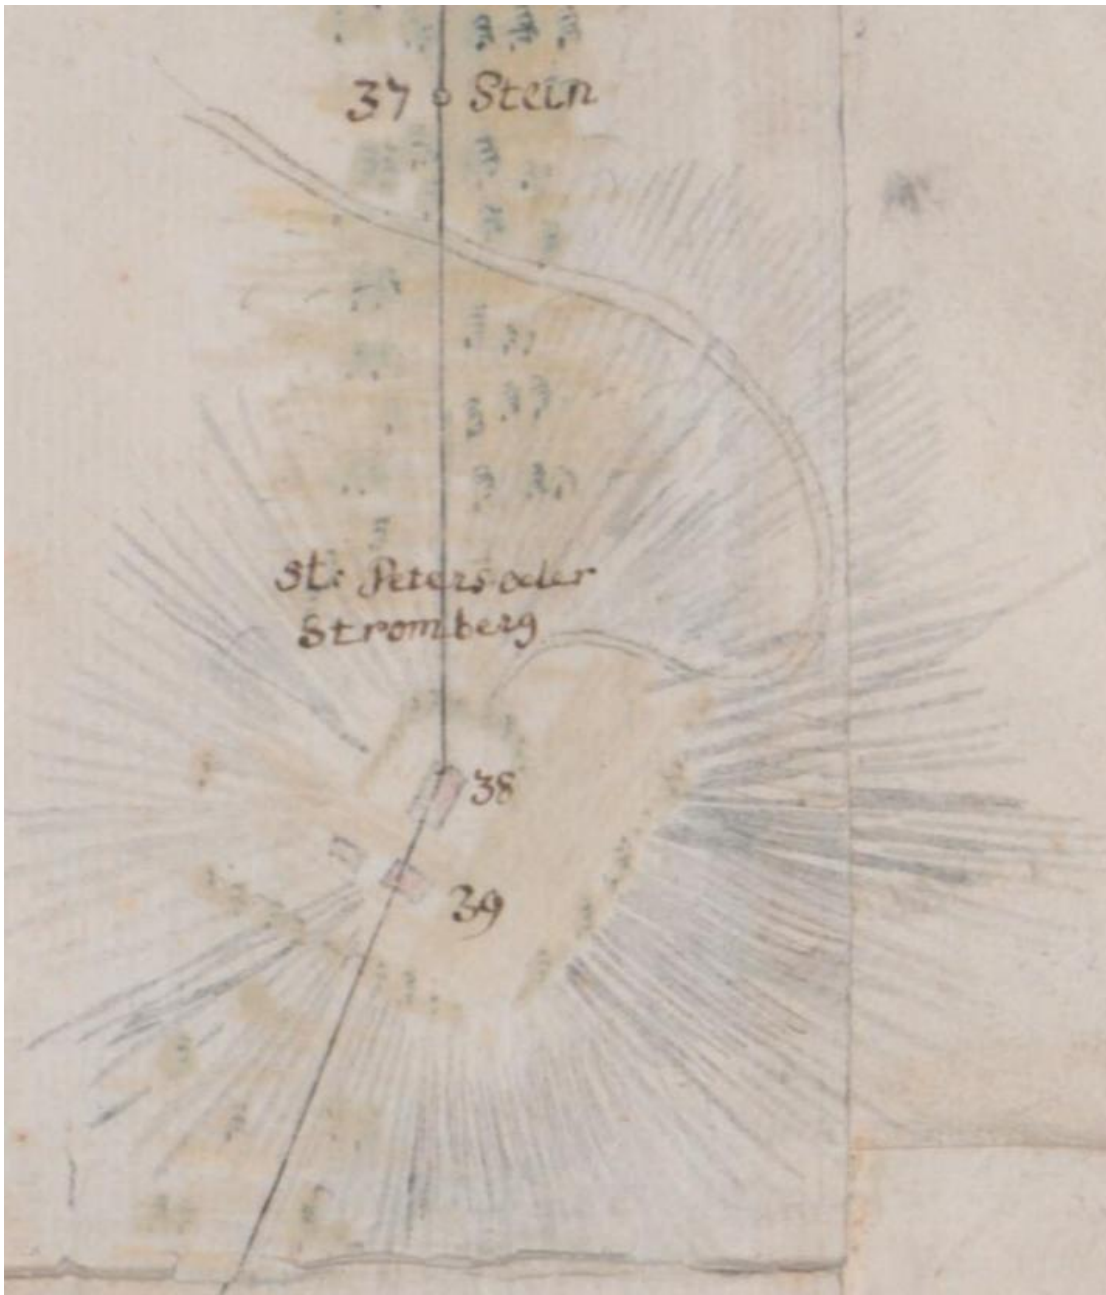 37 Stein
St: Peters oder
Stromberg
38
39